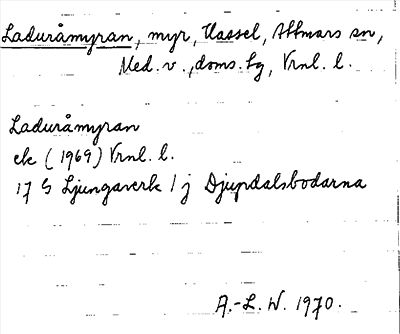 Laduråmyran, myr, Hassel, Attmars sn,
Med. v., doms. tg, Vrnl. l.
Laduråmyran
ek (1969) Vrnl. l.
17 G Ljungaverk 1 j Djupdalsbodarna
A.-L. W. 1970.